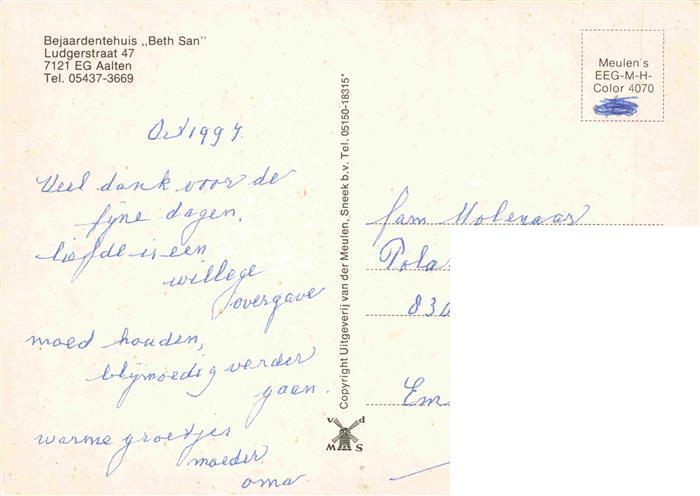 Bejaardentehuis „Beth San"
Ludgerstraat 47
7121 EG Aalten
Tel. 05437-3669
Meulen's
EEG-M-H-
Color 4070
Oct 1994
Veel dank voor de
fijne dagen.
liefde is een
willege
overgave
moed houden,
blijmoedig verder
gaan.
warme groetjes
moeder
oma
Copyright Uitgeverij van der Meulen, Sneek b.v. Tel. 05150-18315*
v d
M S
fam Molenaar
Pola
830
Em